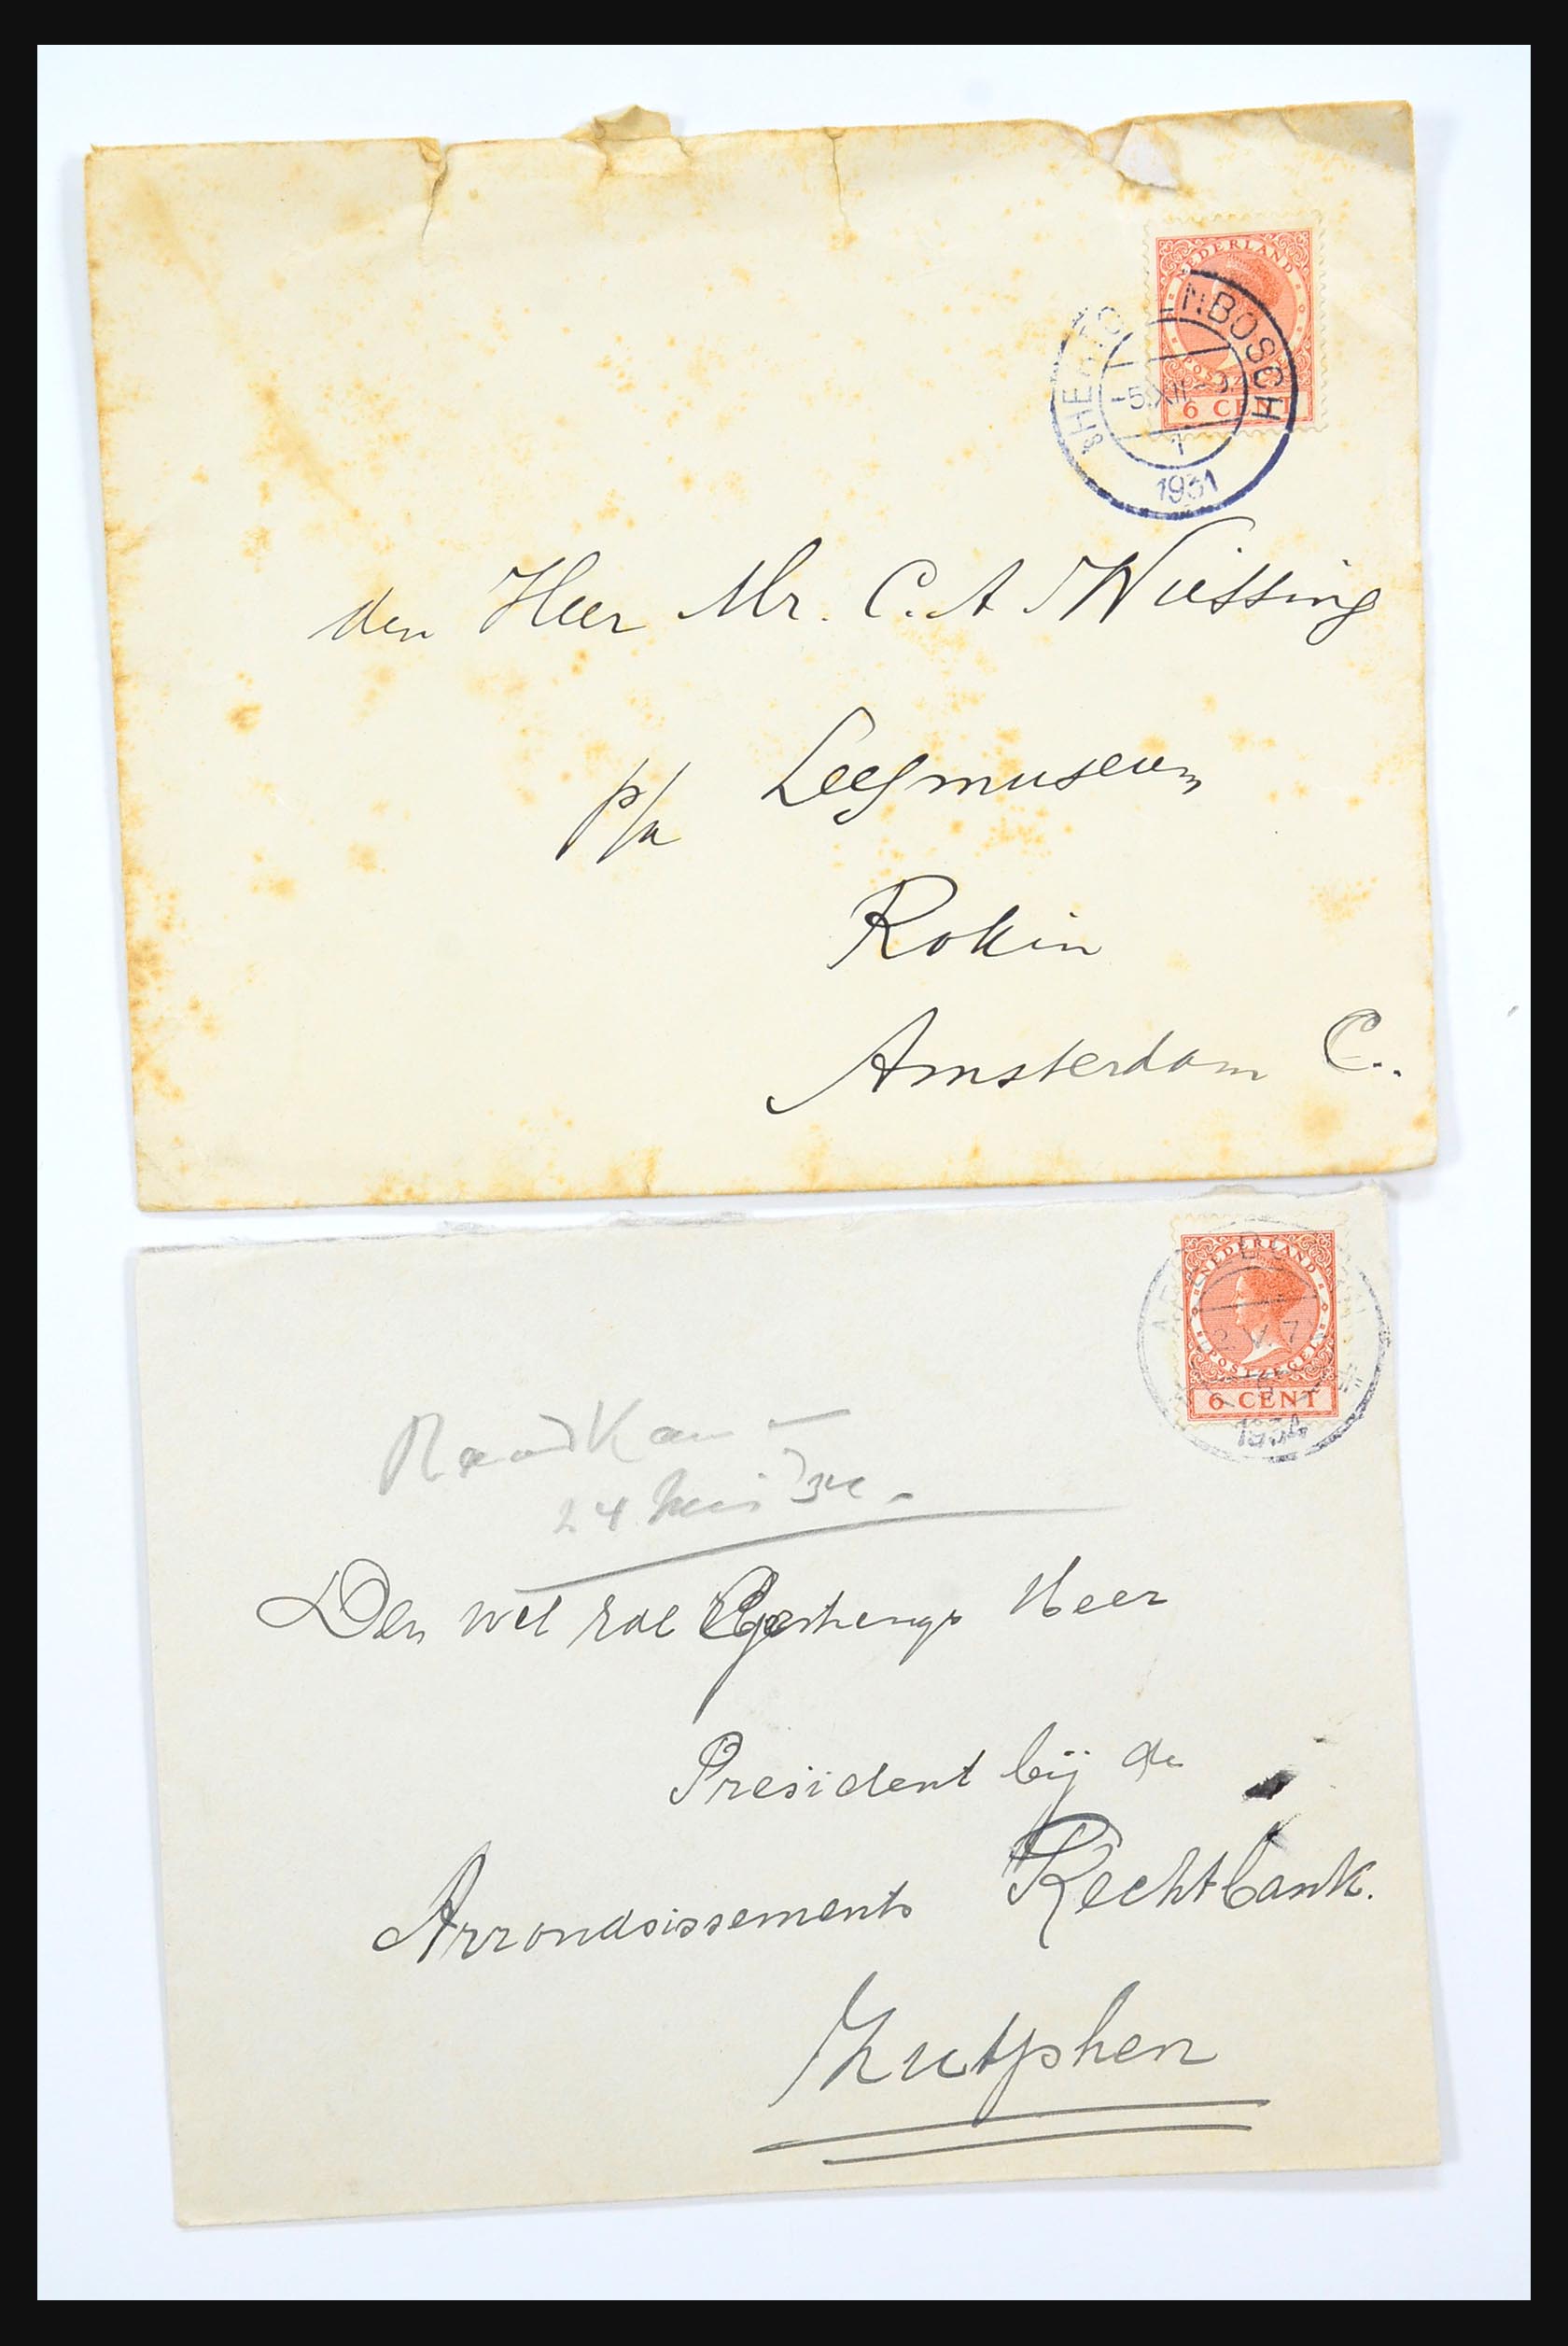 NEDERLAND
POSTZEGEL
6 CENT
'SHERTOGENBOSCH
-5.XII -9.
1
1931
den Heer Mr. C. A Wiessing
p/a Leesmuseum
Rokin
Amsterdam C..
NEDERLAND
POSTZEGEL
6 CENT
2.V.7
1934
Raadkam
24 Mei 34.
Den wel Edel Gestrenge Heer
President bij de
Arrondsissements Rechtbank.
Zutphen